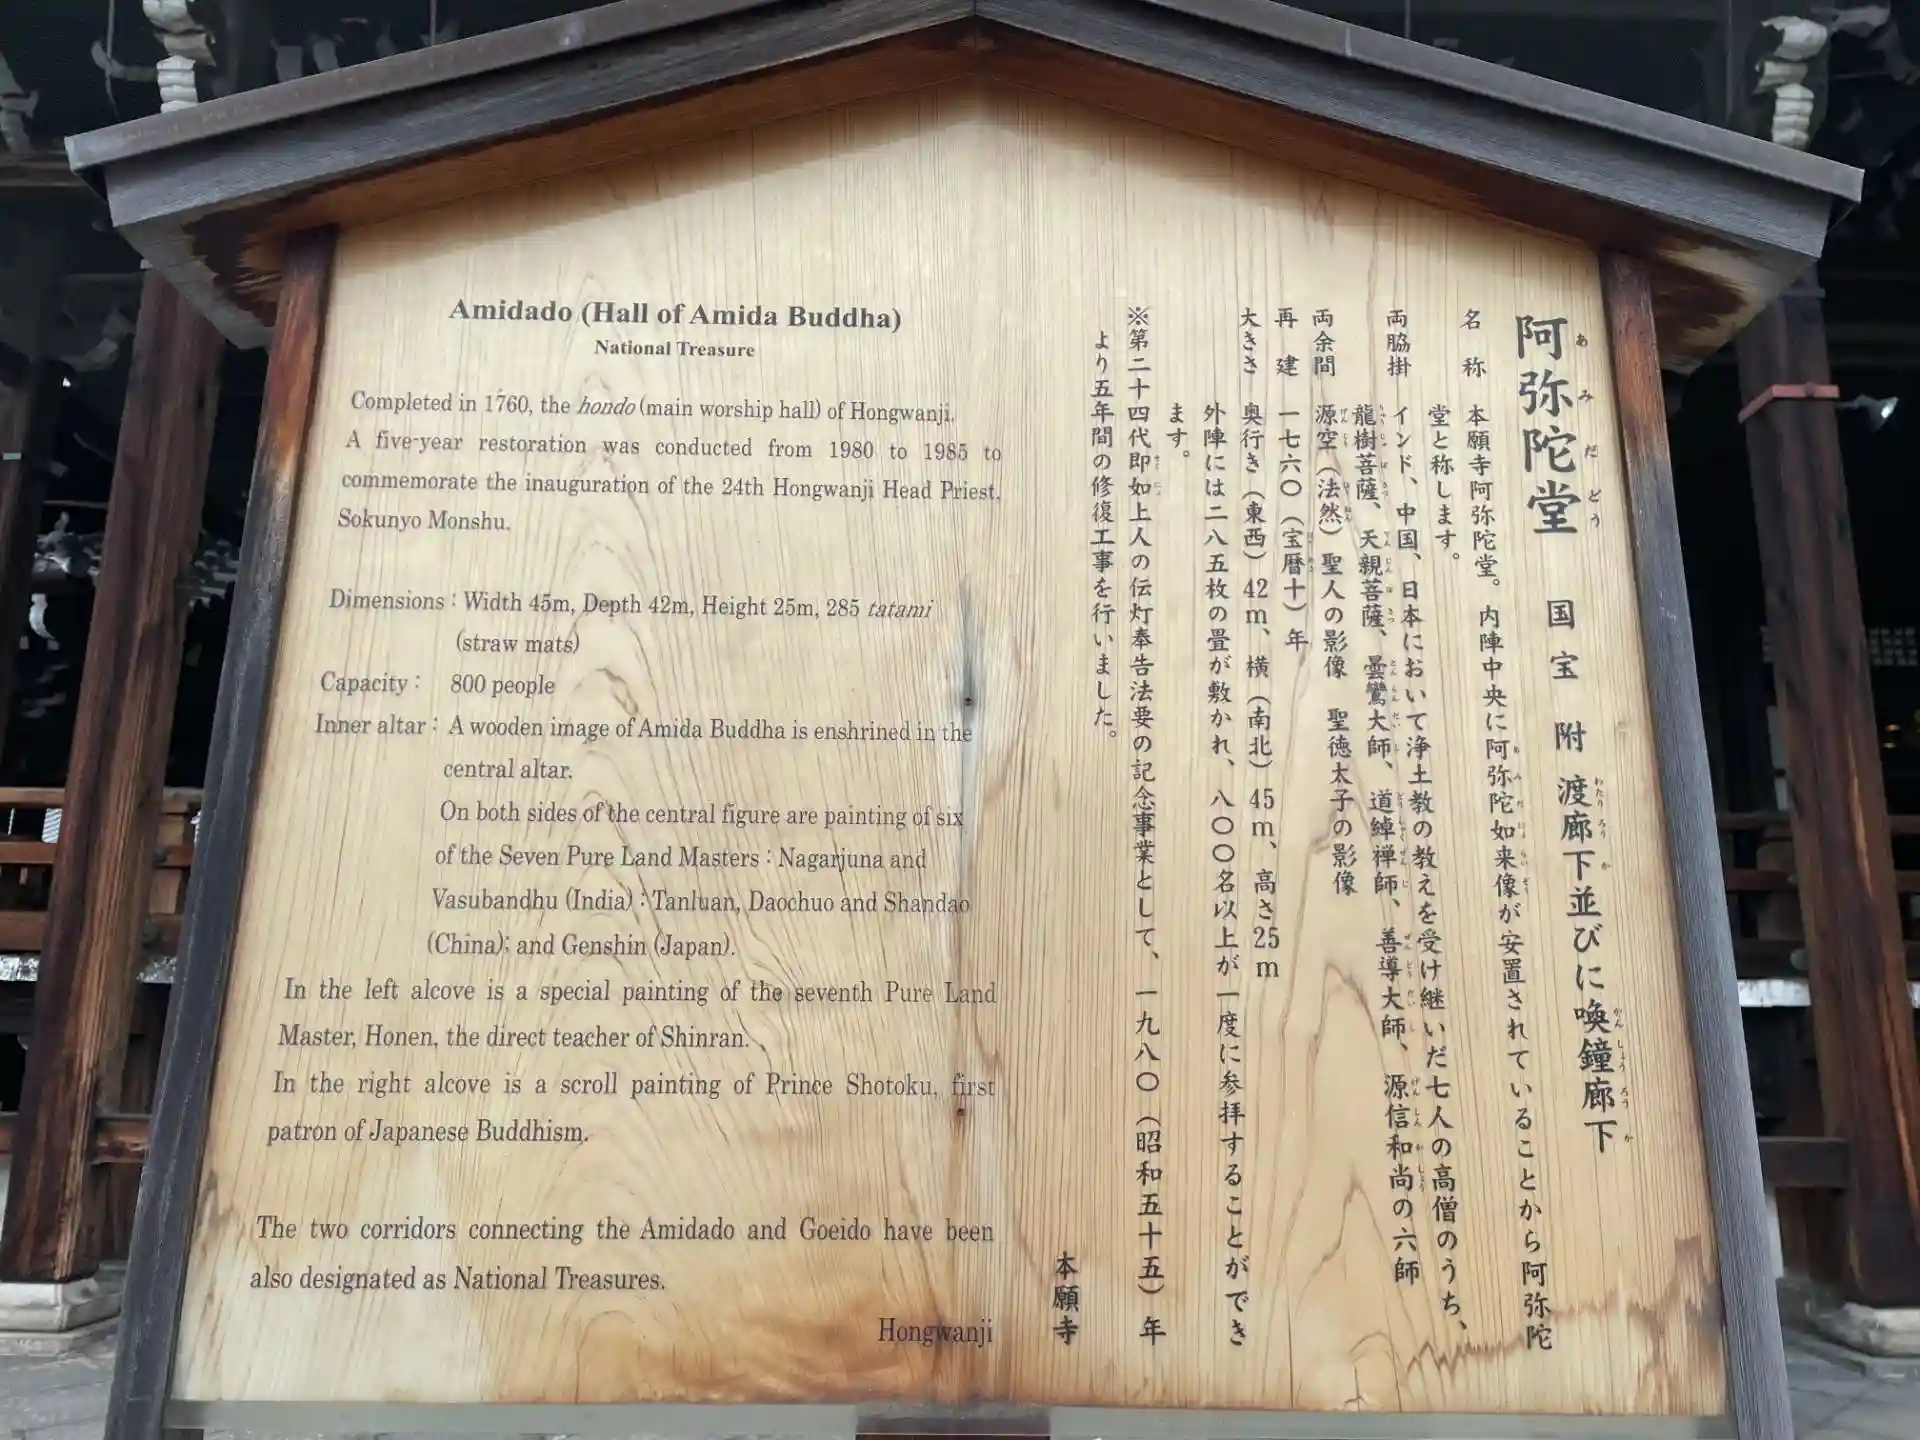 Amidado (Hall of Amida Buddha)
National Treasure
Completed in 1760, the hondo (main worship hall) of Hongwanji.
A five-year restoration was conducted from 1980 to 1985 to
commemorate the inauguration of the 24th Hongwanji Head Priest,
Sokunyo Monshu.
Dimensions : Width 45m, Depth 42m, Height 25m, 285 tatami
(straw mats)
Capacity : 800 people
Inner altar : A wooden image of Amida Buddha is enshrined in the
central altar.
On both sides of the central figure are painting of six
of the Seven Pure Land Masters : Nagarjuna and
Vasubandhu (India) : Tanluan, Daochuo and Shandao
(China); and Genshin (Japan).
In the left alcove is a special painting of the seventh Pure Land
Master, Honen, the direct teacher of Shinran.
In the right alcove is a scroll painting of Prince Shotoku, first
patron of Japanese Buddhism.
The two corridors connecting the Amidado and Goeido have been
also designated as National Treasures.
Hongwanji
阿弥陀堂 国宝 附 渡廊下並びに喚鐘廊下
名称 本願寺阿弥陀堂。内陣中央に阿弥陀如来像が安置されていることから阿弥陀
堂と称します。
両脇掛 インド、中国、日本において浄土教の教えを受け継いだ七人の高僧のうち、
龍樹菩薩、天親菩薩、曇鸞大師、道綽禅師、善導大師、源信和尚の六師
両余間 源空（法然）聖人の影像 聖徳太子の影像
再建 一七六〇（宝暦十）年
大きさ 奥行き（東西）42m、横（南北）45m、高さ25m
外陣には二八五枚の畳が敷かれ、八〇〇名以上が一度に参拝することができ
ます。
※第二十四代即如上人の伝灯奉告法要の記念事業として、一九八〇（昭和五十五）年
より五年間の修復工事を行いました。
本願寺